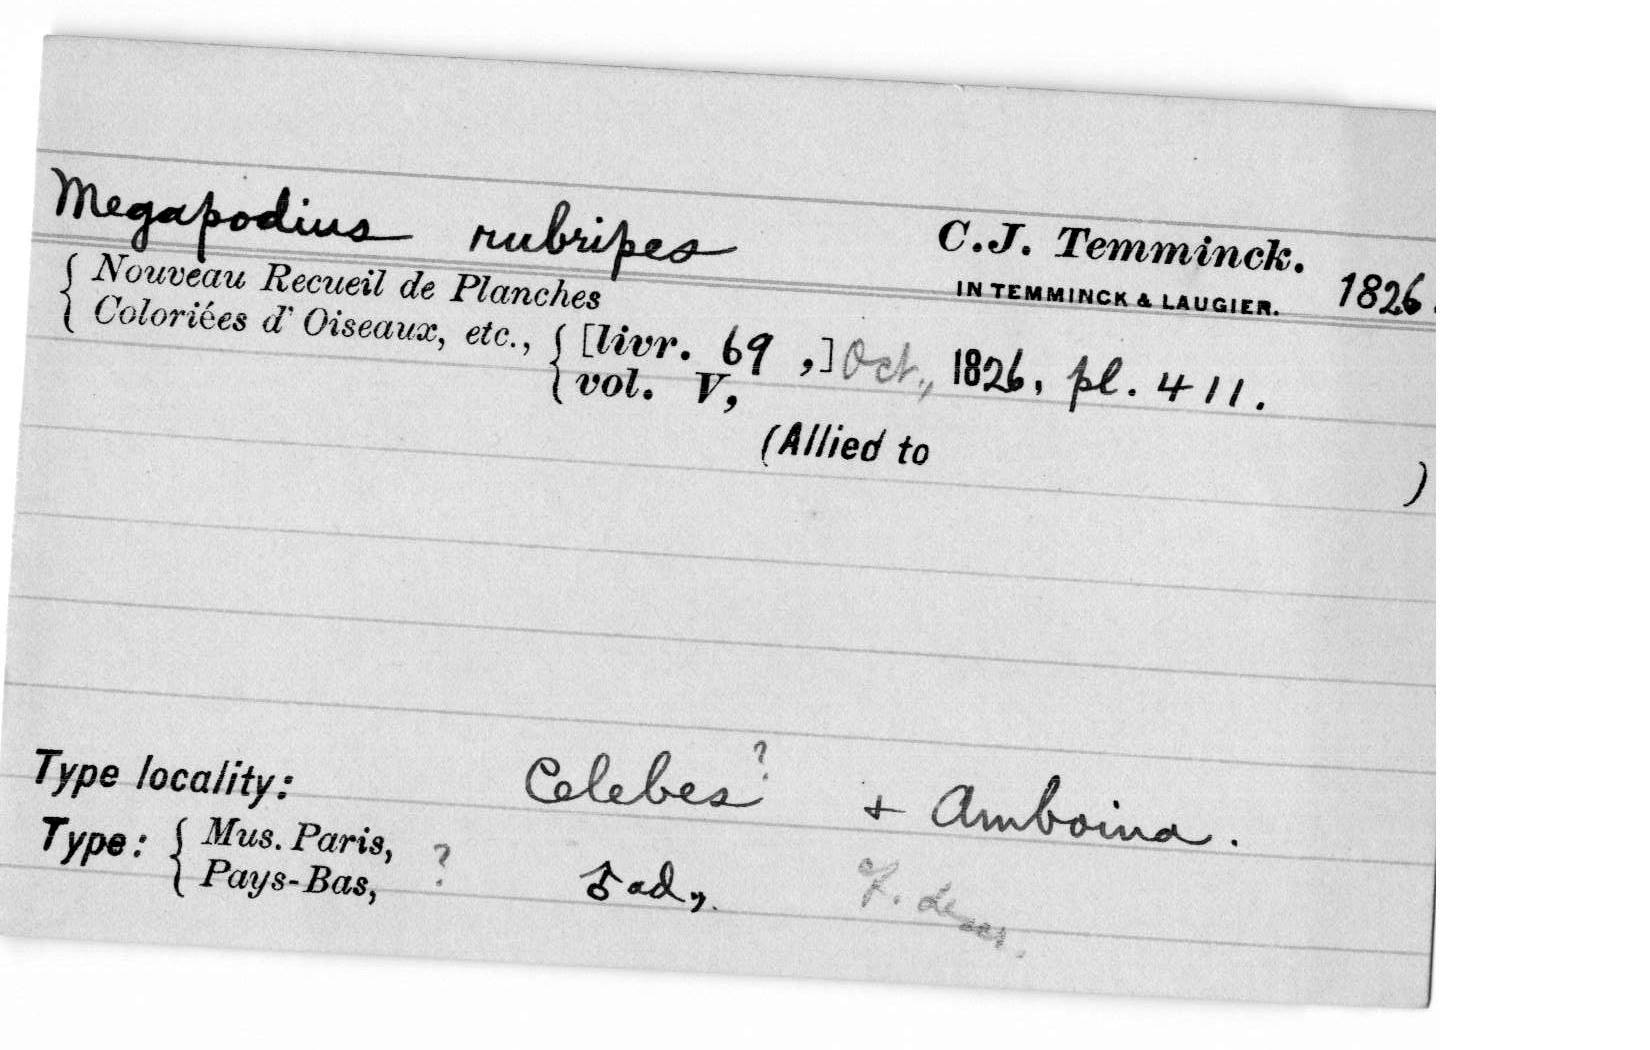 Megapodius rubripes C.J. Temminck.
{ Nouveau Recueil de Planches IN TEMMINCK & LAUGIER. 1826.
Coloriées d' Oiseaux, etc., { [livr. 69 ,] Oct., 1826, pl. 411.
vol. V,
(Allied to )
Type locality: Celebes? + Amboina.
Type: { Mus. Paris, ? ♂ ad,.
Pays-Bas,